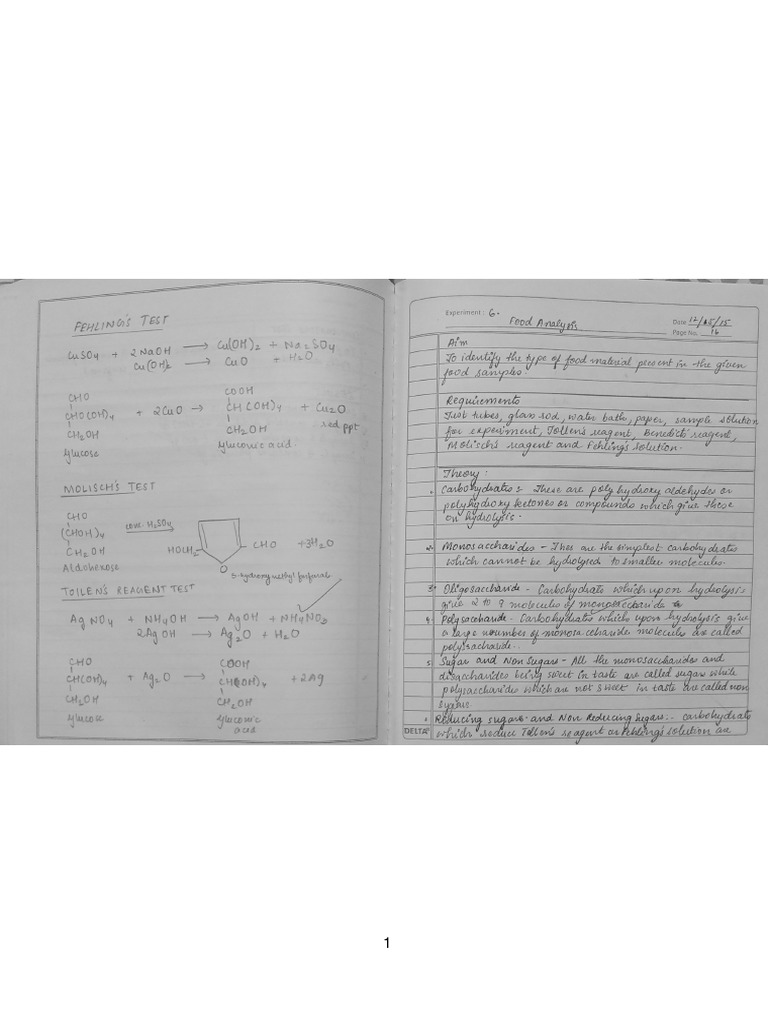 FEHLING'S TEST
CuSO4 + 2NaOH → Cu(OH)2 + Na2SO4
Cu(OH)2 → CuO + H2O
CHO COOH
CHO(OH)4 + 2CuO → CH(OH)4 + Cu2O
CH2OH CH2OH red ppt
glucose gluconic acid.
MOLISCH'S TEST
CHO
(CHOH)4 conc. H2SO4
CH2OH HOCH2 CHO +3H2O
Aldohexose O
5-hydroxy methyl furfural
TOLLEN'S REAGENT TEST
AgNO4 + NH4OH → AgOH + NH4NO3
2AgOH → Ag2O + H2O
CHO COOH
CH(OH)4 + Ag2O → CH(OH)4 + 2Ag
CH2OH CH2OH
glucose gluconic
acid
Experiment : 6.
Food Analysis
Date 12/ /15
Page No. 16
Aim
To identify the type of food material present in the given
food samples.
Requirements
Test tubes, glass rod, water bath, paper, sample solution
for experiment, Tollen's reagent, Benedict' reagent,
Molisch's reagent and Fehling's solution.
Theory :
Carbohydrates : These are poly hydroxy aldehydes or
polyhydroxy ketones or compounds which give these
on hydrolysis.
Monosaccharides - Thes are the simplest carbohydrates
which cannot be hydrolysed to smaller molecules.
3. Oligosaccharide - Carbohydrate which upon hydrolysis
give 2 to 9 molecules of monosaccharide
4. Polysaccharide - Carbohydrates which upon hydrolysis give
a large number of monosaccharide molecules are called
polysaccharide.
5. Sugar and Non Sugars - All the monosaccharides and
disaccharides being sweet in taste are called sugars while
polysaccharides which are not sweet in taste are called non
sugars.
Reducing sugars and Non Reducing sugars :- carbohydrate
DELTA which reduce Tollen's reagent or Fehling's solution are
1